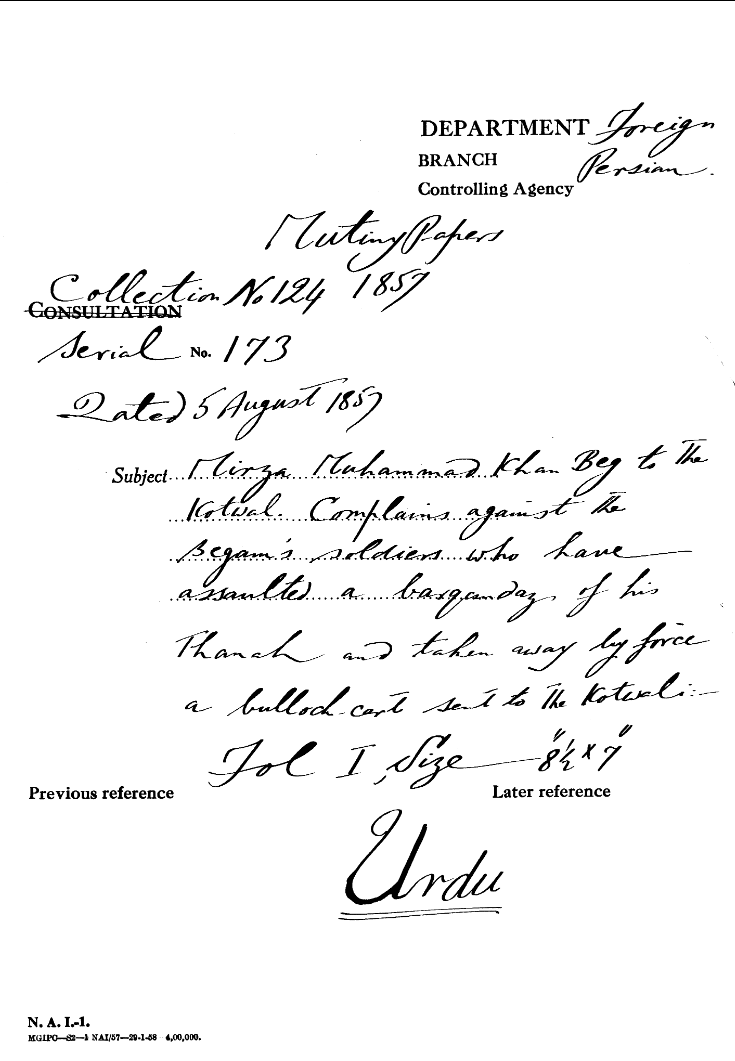 DEPARTMENT Foreign
BRANCH Persian.
Controlling Agency
Mutiny Papers
Collection No 124 1857
CONSULTATION
Serial No. 173
Dated 5 August 1857
Subject Mirza Muhammad Khan Beg to the
Kotwal. Complains against the
Begam's soldiers who have
assaulted a barqandaz of his
Thanah and taken away by force
a bullock-cart sent to the Kotwali:—
Fol I, Size — 8½" x 7"
Previous reference Later reference
Urdu
N. A. I.-1.
MGIPC—S2—1 NAI/57—29-1-58 4,00,000.